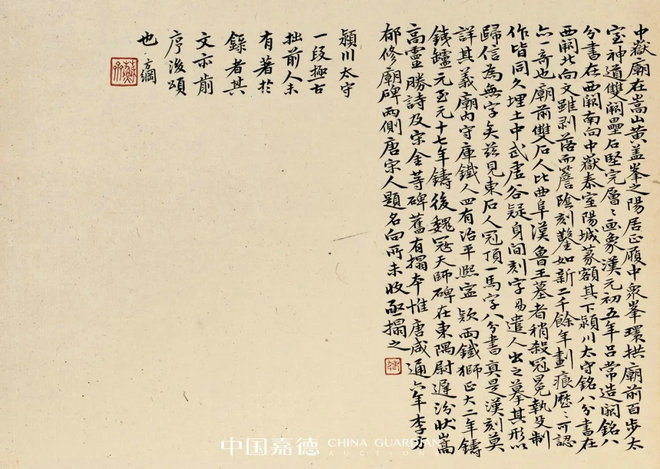 中嶽廟在嵩山黄盖峯之陽居正履中衆峯環拱廟前百步太
室神道雙闕壘石堅完層〻畫象漢元初五年吕常造闕銘八
分書在西闕南向中嶽泰室陽城篆額其下潁川太守銘八分書在
西闕北向文雖剥落而簷陰刻鏨如新二千餘年劃痕歷〻可認
亦一奇也廟前雙石人比曲阜漢魯王墓者稍殺冠冕執殳制
作皆同久埋土中武虚谷疑身間刻字易遣人出之摹其形以
歸信為無字矣兹見東石人冠頂一馬字八分書真是漢刻莫
詳其義廟内守庫鐵人四有治平熙寧款兩鐵獅正大二年鑄
鐵鑪元至元十七年鑄後魏寇天師碑在東隅尉遲汾狀嵩
高靈勝詩及宋金等碑舊有搨本惟唐咸通六年李
郁修廟碑兩側唐宋人題名向所未收亟搨之
潁川太守
一段極古
拙前人未
有著於
錄者其
文亦前
序後頌
也
中国嘉德 CHINA GUARDIAN
AUCTIONS